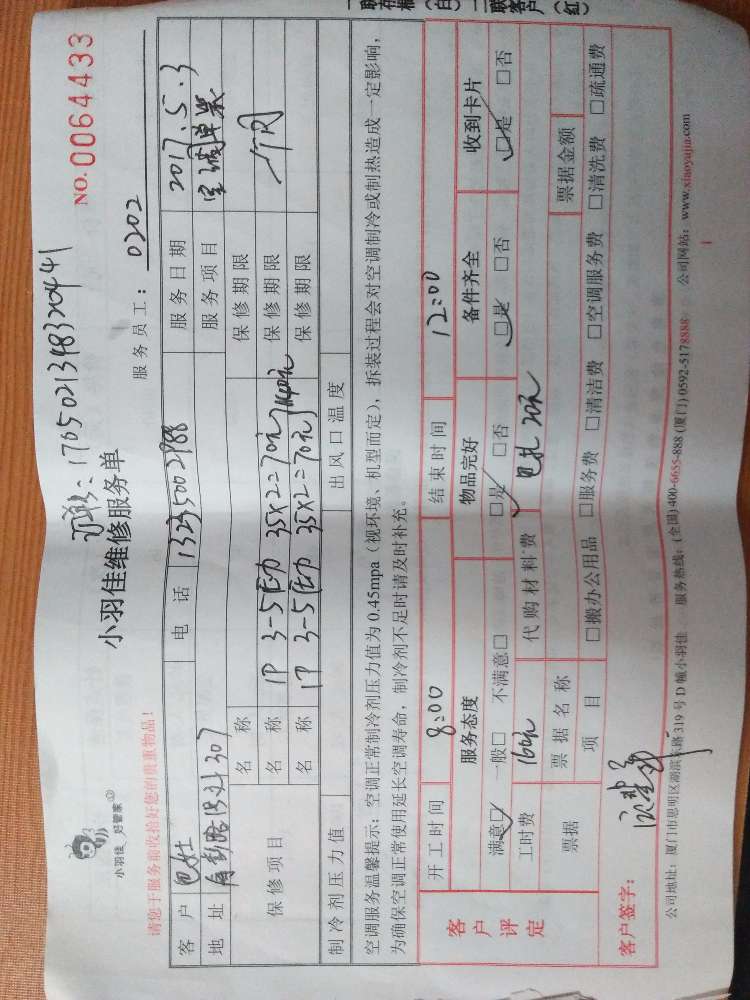 联客户(红)
NO.0064433
订单号:17050213483204 41
小羽佳 好管家
小羽佳维修服务单
服务员工: 0202
请您于服务前收拾好您的贵重物品!
客户 电话 13235002988 服务日期 2017.5.3
地址 307 服务项目 空调单装
保修项目 名称 保修期限
名称 1P 3-5压力 35X2=70元 保修期限 一个月
名称 1P 3-5压力 35X2=70元 140元 保修期限
制冷剂压力值 出风口温度
空调服务温馨提示:空调正常制冷剂压力值为0.45mpa(视环境、机型而定),拆装过程会对空调制冷或制热造成一定影响,
为确保空调正常使用延长空调寿命,制冷剂不足时请及时补充。
客户评定
开工时间 8:00 结束时间 12:00
服务态度 物品完好 备件齐全 收到卡片
满意☑ 一般□ 不满意□ ☑是 □否 ☑是 □否 ☑是 □否
工时费 160元 代购材料费 20元
票据 票据名称 票据金额
项目 □搬办公用品 □服务费 □清洁费 □空调服务费 □清洗费 □疏通费
客户签字:
公司地址:厦门市思明区湖滨东路319号D幢小羽佳 服务热线:(全国)400-6655-888 (厦门)0592-5178888 公司网站:www.xiaoyujia.com